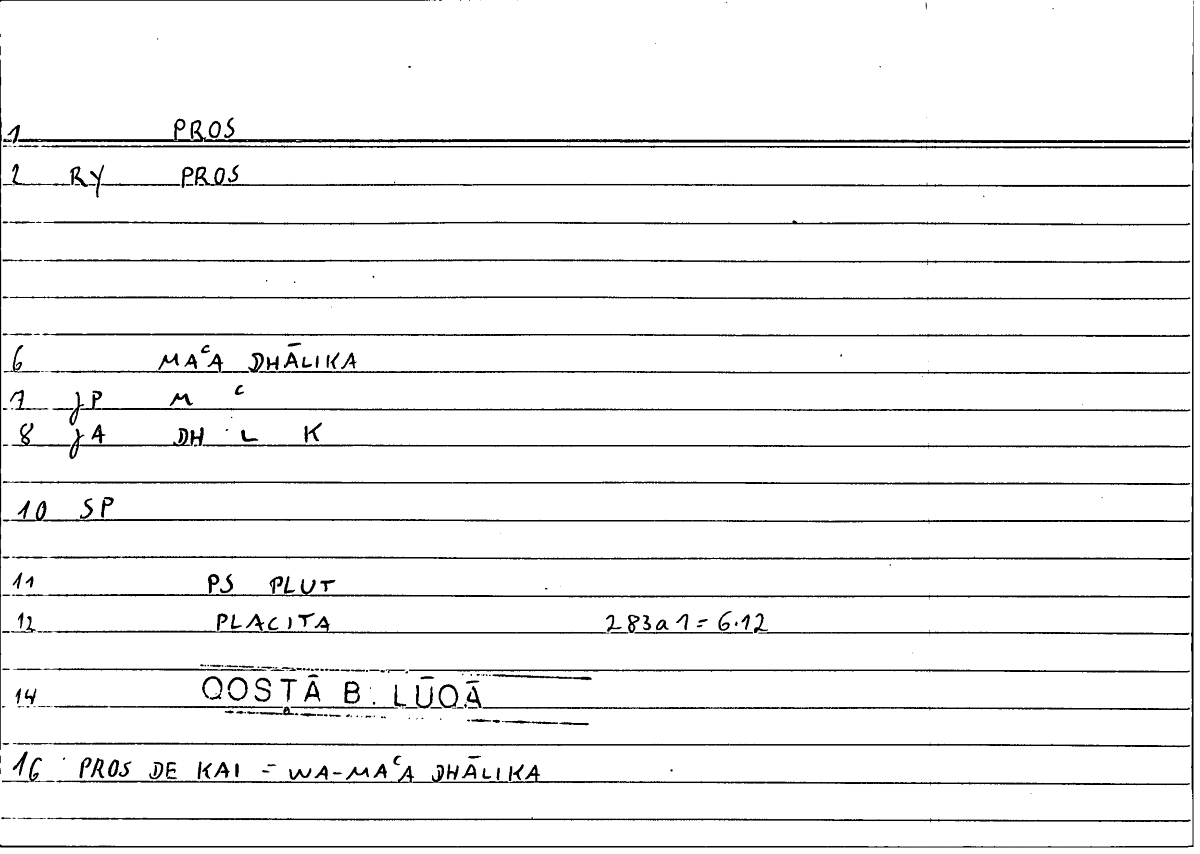 1 PROS
2 RY PROS
6 MAᶜA DHĀLIKA
7 JP M ᶜ
8 JA DH L K
10 SP
11 PS PLUT
12 PLACITA 283a1=6.12
14 QOSṬĀ B. LŪQĀ
16 PROS DE KAI = WA-MAᶜA DHĀLIKA